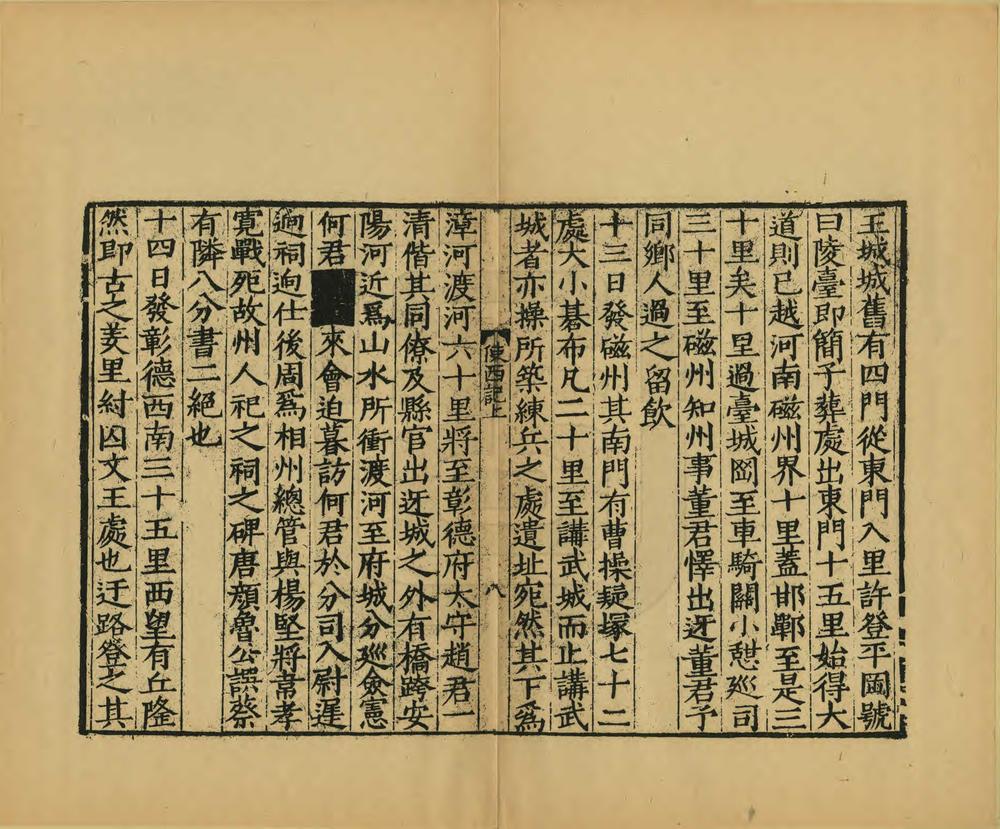 王城城舊有四門從東門入里許登平岡號
曰陵臺即簡子葬處出東門十五里始得大
道則已越河南磁州界十里蓋邯鄲至是三
十里矣十里過臺城岡至車騎關小憇廵司
三十里至磁州知州事董君懌出迓董君予
同鄉人過之留飲
十三日發磁州其南門有曹操疑塚七十二
處大小碁布凡二十里至講武城而止講武
城者亦操所築練兵之處遺址宛然其下爲
使西記上
八
漳河渡河六十里將至彰德府太守趙君一
清偕其同僚及縣官出迓城之外有橋跨安
陽河近爲山水所衝渡河至府城分廵僉憲
何君來會迫暮訪何君於分司入尉遲
逈祠逈仕後周爲相州總管與楊堅將韋孝
寬戰死故州人祀之祠之碑唐顏魯公譔蔡
有隣八分書二絕也
十四日發彰德西南三十五里西望有丘隆
然即古之羑里紂囚文王處也迂路登之其